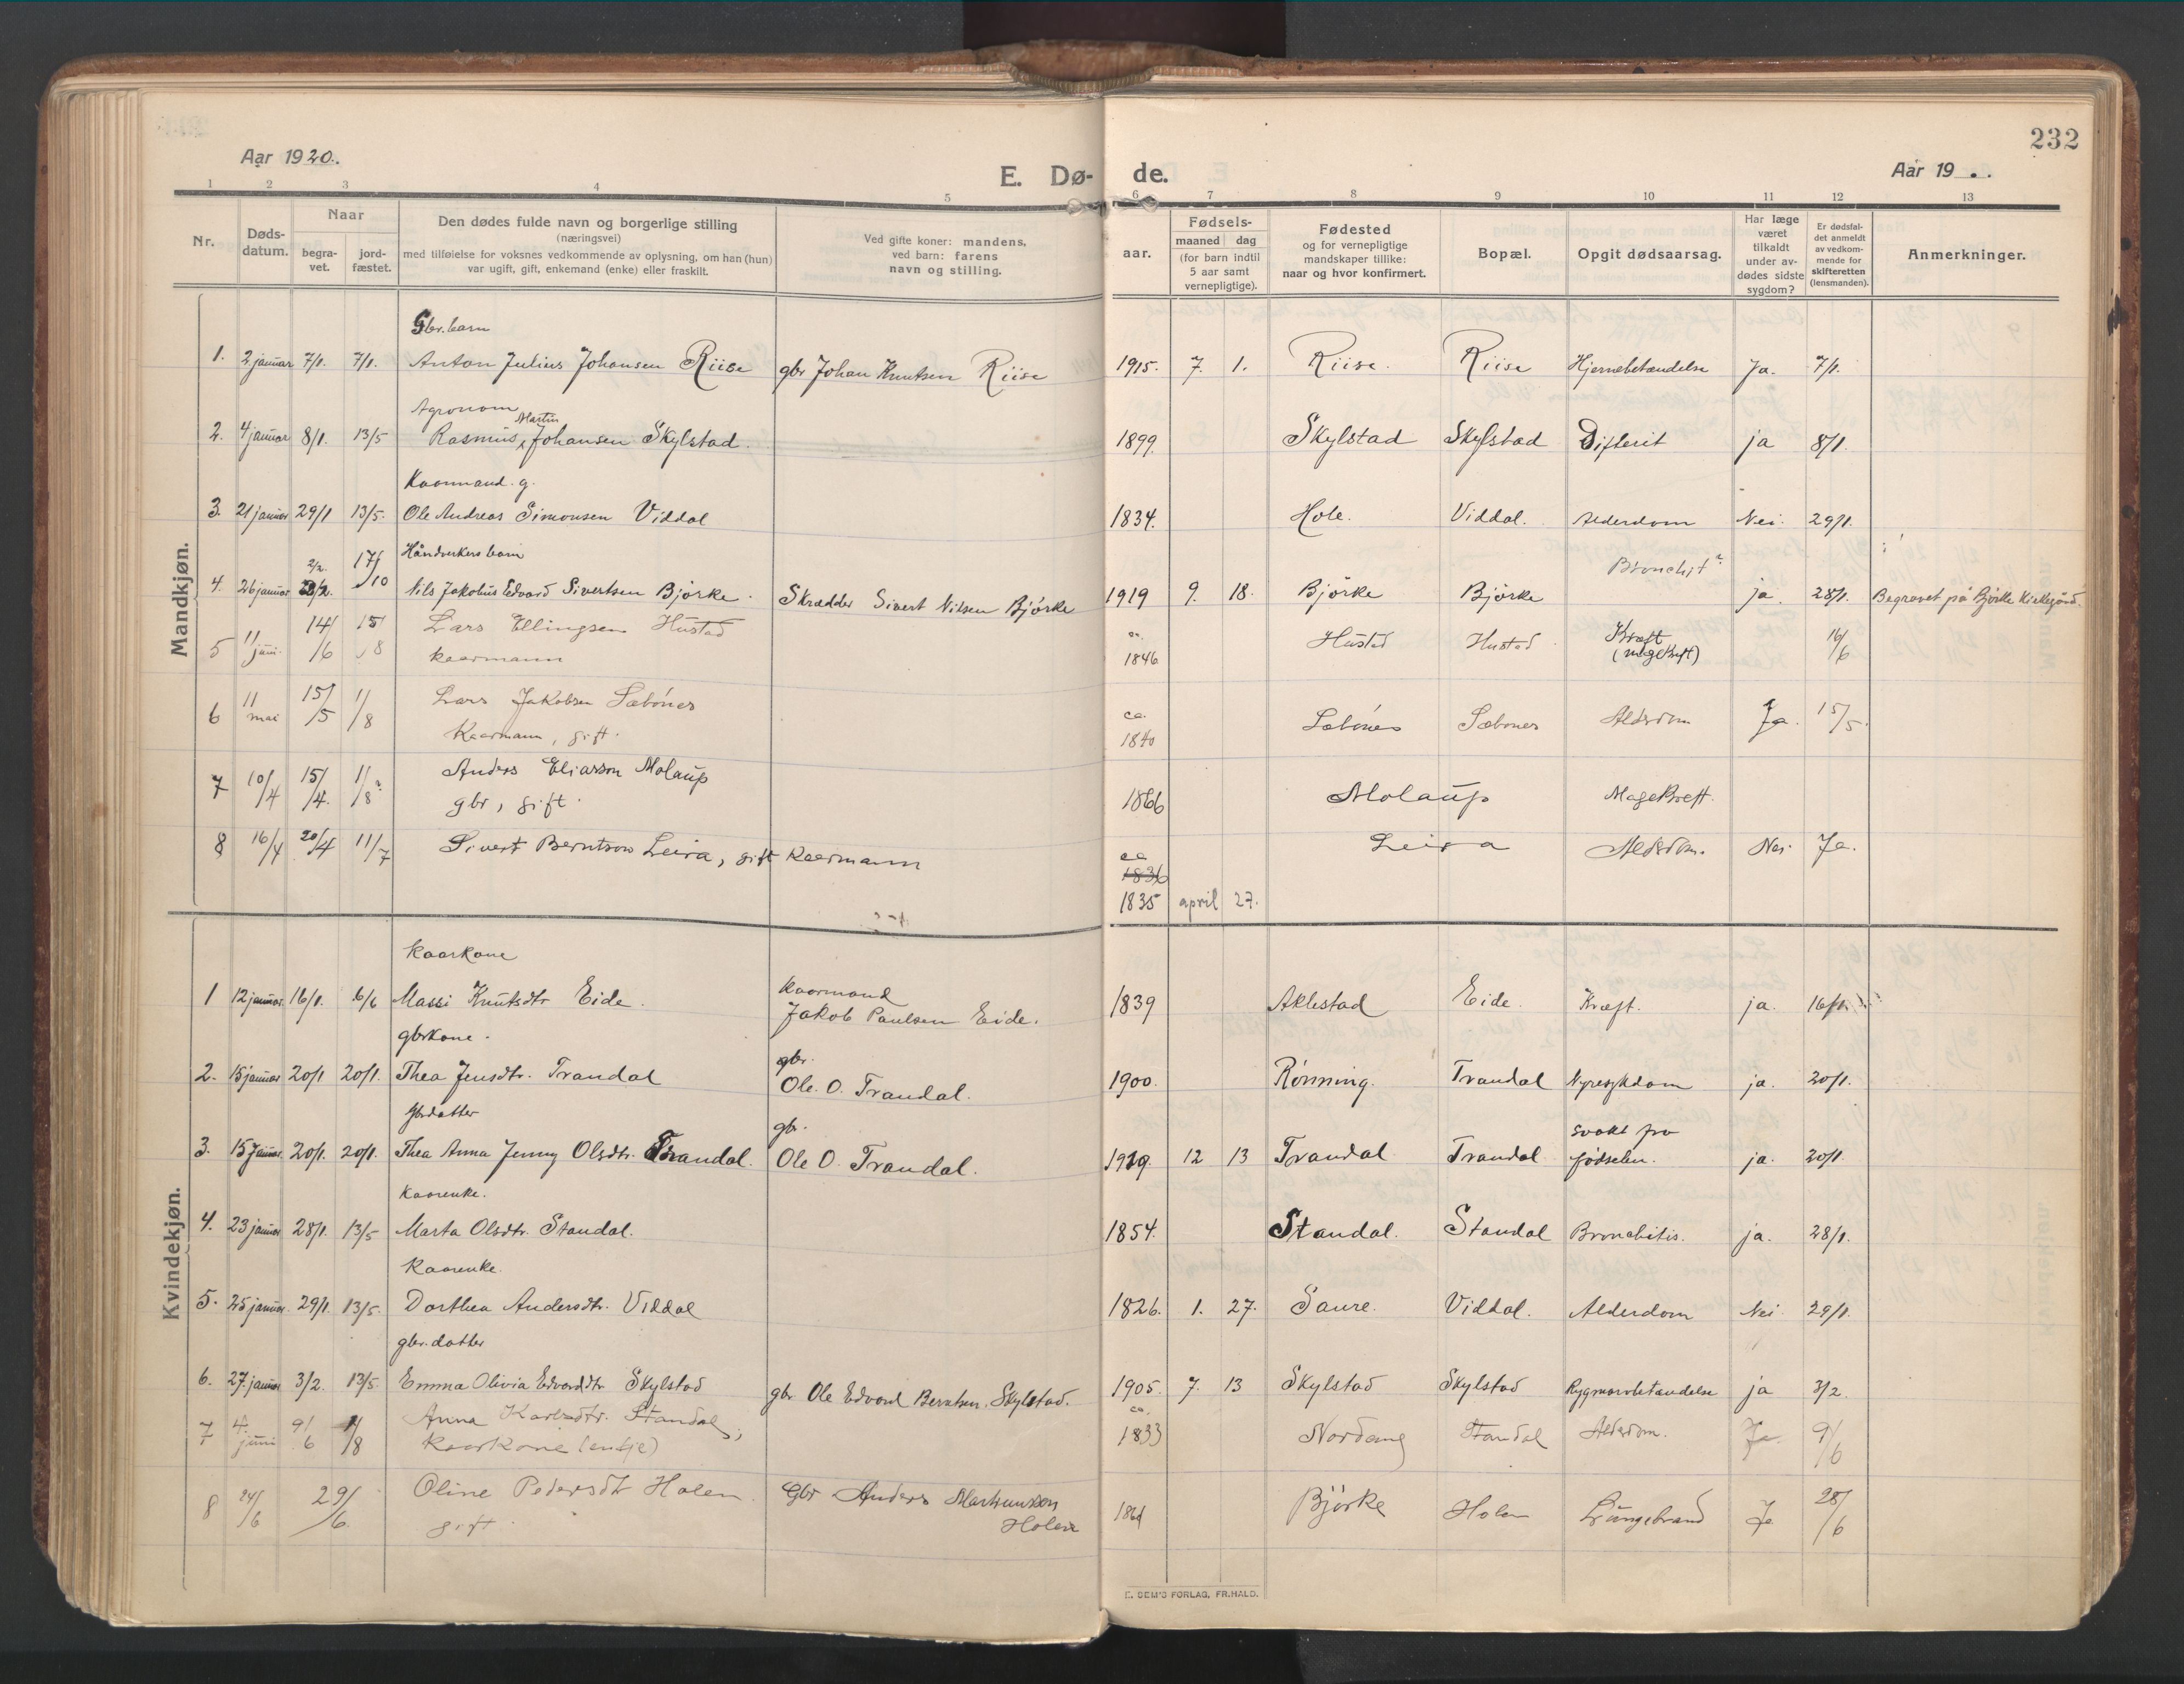 232
Aar 1920.
E. Dø- de.
Aar 19 . .
1 2 3 4 5 6 7 8 9 10 11 12 13
Nr.
Døds-
datum.
Naar
begra-
vet.
jord-
fæstet.
Den dødes fulde navn og borgerlige stilling
(næringsvei)
med tilføielse for voksnes vedkommende av oplysning, om han (hun)
var ugift, gift, enkemand (enke) eller fraskilt.
Ved gifte koner: mandens,
ved barn: farens
navn og stilling.
Fødsels-
aar.
maaned dag
(for barn indtil
5 aar samt
vernepligtige).
Fødested
og for vernepligtige
mandskaper tillike:
naar og hvor konfirmert.
Bopæl.
Opgit dødsaarsag.
Har læge
været
tilkaldt
under av-
dødes sidste
sygdom?
Er dødsfal-
det anmeldt
av vedkom-
mende for
skifteretten
(lensmanden).
Anmerkninger.
Mandkjøn.
Gbr. barn
1. 2 januar 7/1. 7/1. Anton Julius Johansen Riise gbr Johan Knutsen Riise 1915. 7. 1. Riise. Riise Hjernebetændelse Ja. 7/1.
Agronom
Martin
2. 4 januar 8/1. 13/5 Rasmus Johansen Skylstad. 1899. Skylstad Skylstad Difterit ja 8/1.
Kaarmand. g.
3. 21 januar 29/1 13/5. Ole Andreas Simonsen Viddal 1834. Hole. Viddal. Alderdom Nei. 29/1.
Håndverkers barn
4. 26 januar 2/2. 17/10 Nils Jakobus Edvard Sivertsen Bjørke. Skrædder Sivert Nilsen Bjørke 1919 9. 18. Bjørke Bjørke Bronchit? ja. 28/1. Begravet på Bjørke Kirkegård.
5 11 juni. 14/6 15/8 Lars Ellingsen Hustad ca. 1846 Hustad Hustad Kræft 16/6
kaarmann (magekræft)
6 11 mai 15/5 1/8 Lars Jakobsen Sæbönes ca. 1840 Sæbönes Sæbones Alderdom Ja. 15/5.
Kaarmann, gift.
7 10/4 15/4. 1/8? Anders Eliassøn Molaup 1866 Molaup Magekreft.
gbr, gift.
8 16/4 20/4 11/7 Sivert Berntson Leira, gift kaarmann ca 1836 Leira Alderdom. Nei Ja.
1835 april 27.
Kvindekjøn.
Kaarkone
1 12 januar. 16/1. 6/6 Massi Knutsdtr Eide. Kaarmand 1839 Aklestad Eide. Kræft. ja. 16/1.
Jakob Paulsen Eide.
gbrkone.
2. 15 januar 20/1 20/1. Thea Jensdtr. Trandal gbr. 1900. Rönning. Trandal Nyresykdom ja. 20/1.
Ole. O. Trandal.
Gbrdatter
3. 15 januar. 20/1. 20/1. Thea Anna Jenny Olsdtr. Trandal. gbr. 1919. 12 13 Trandal Trandal svakt fra ja. 20/1.
Ole O. Trandal. fødselen.
Kaarenke.
4. 23 januar 28/1. 13/5 Marta Olsdtr. Standal. 1854. Standal. Standal Bronchitis. ja. 28/1.
Kaarenke.
5. 25 januar. 29/1. 13/5. Dorthea Andersdtr. Viddal 1826. 1. 27. Saure. Viddal. Alderdom Nei 29/1.
gbr. datter
6. 27. januar 3/2. 13/5. Emma Olivia Edvarddtr Skylstad gbr. Ole Edvard Berntsen Skylstad. 1905. 7. 13 Skylstad Skylstad Rygmarvbetændelse ja 3/2.
7 4. juni 9/6 1/8 Anna Karlsdtr. Standal, ca. 1833 Nordang Standal Alderdom. Ja. 9/6
Kaarkone (enkje)
8 24/6 29/6. Oline Pedersdtr Holen. Gbr Anders Martinussen Holen 1861 Björke Holen Lungebrand Ja 28/6
gift.
E. SEM'S FORLAG, FR.HALD.